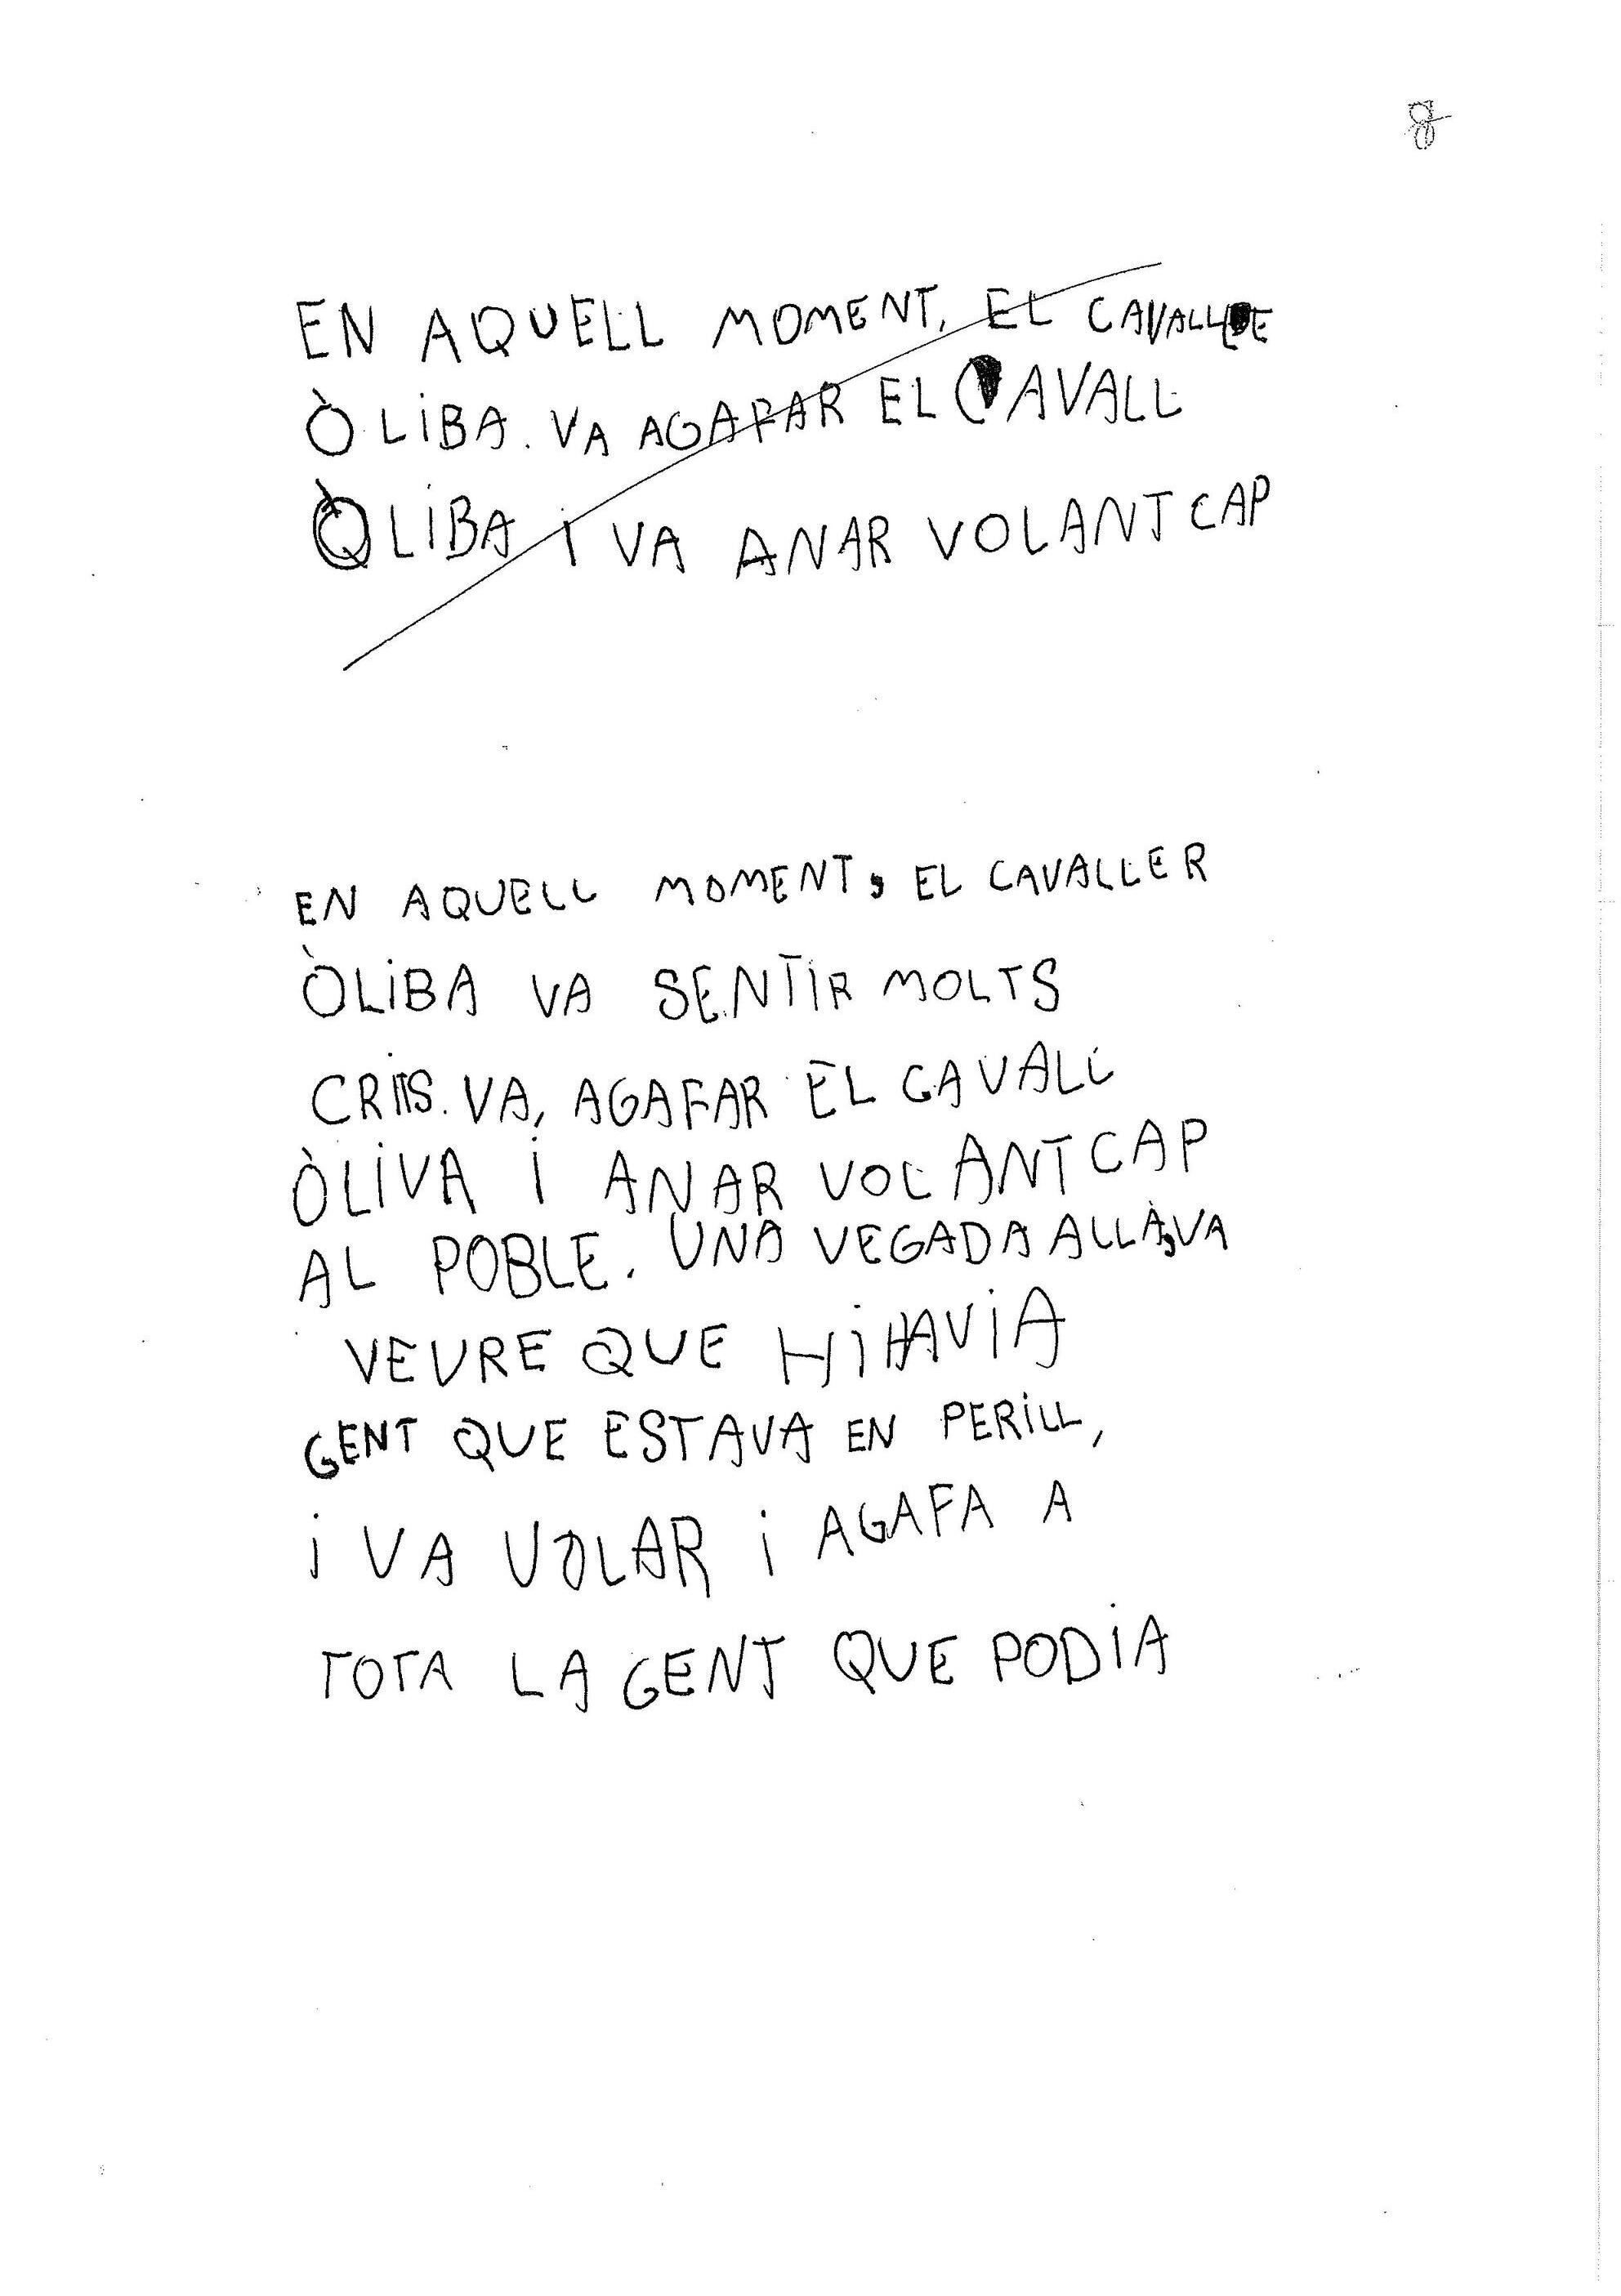 8
EN AQUELL MOMENT, EL CAVALLE
ÒLIBA. VA AGAFAR EL CAVALL
ÒLIBA I VA ANAR VOLANT CAP
EN AQUELL MOMENT, EL CAVALLER
ÒLIBA VA SENTIR MOLTS
CRITS. VA, AGAFAR EL CAVALL
ÒLIVA I ANAR VOLANT CAP
AL POBLE. UNA VEGADA ALLÀ, VA
VEURE QUE HI HAVIA
GENT QUE ESTAVA EN PERILL,
I VA VOLAR I AGAFA A
TOTA LA GENT QUE PODIA